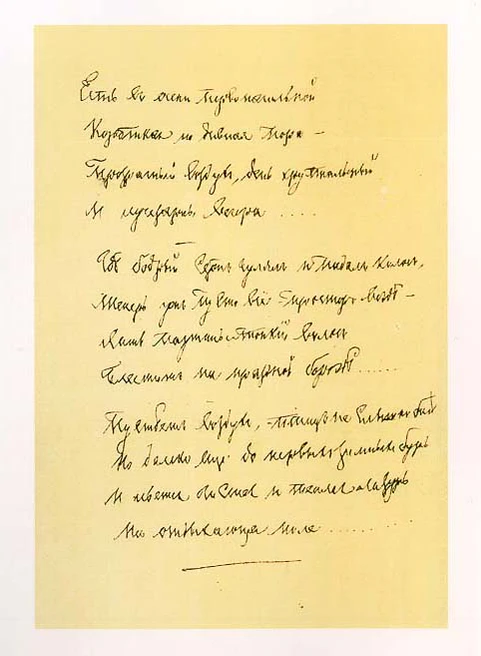 Есть въ осени первоначальной
Короткая но дивная пора –
Прозрачный воздухъ, день хрустальный
И лучезарны вечера ....
Гдѣ бодрый серпъ гулялъ и падалъ колосъ,
Теперь ужъ пусто все – просторъ вездѣ –
Лишь паутины тонкій волосъ
Блеститъ на праздной бороздѣ ......
Пустѣетъ воздухъ, – птицъ не слышно болѣ
Но далеко еще до первыхъ зимнихъ бурь
И льется чистая и теплая лазурь
На отдыхающее поле ........